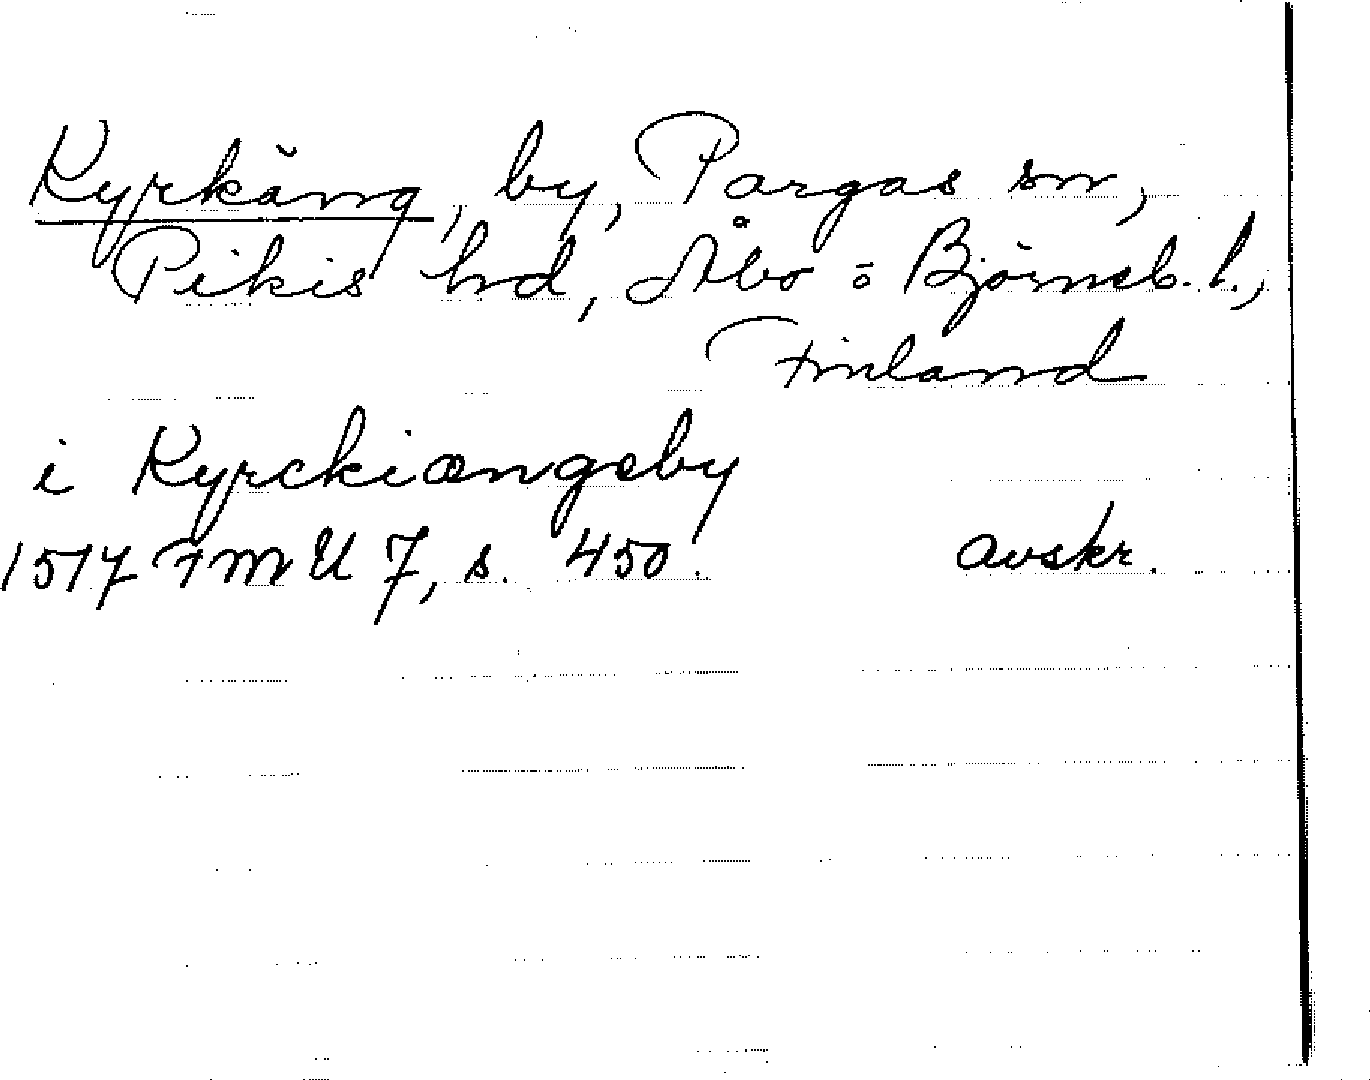 Kyrkäng, by, Pargas sn,
Pikis hd, Åbo o Björneb. l.,
Finland
i Kyrckiængsby
1517 FMU 7, s. 450. avskr.